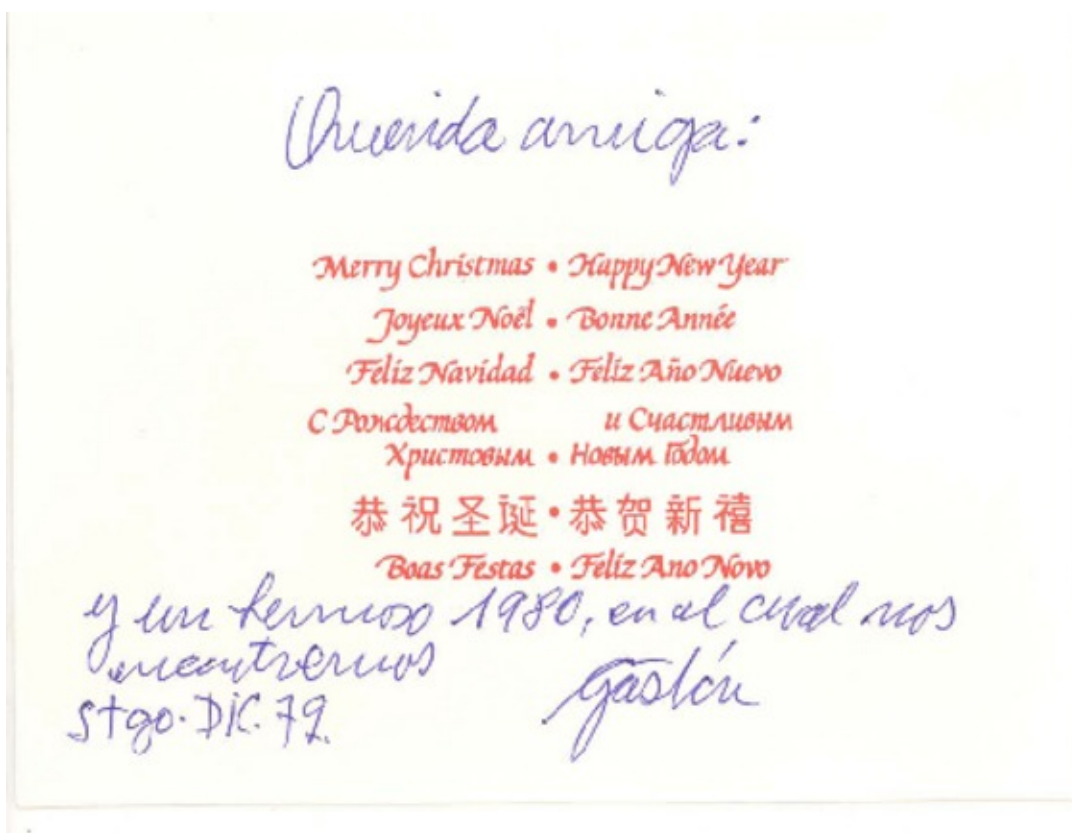 Querida amiga:
Merry Christmas • Happy New Year
Joyeux Noël • Bonne Année
Feliz Navidad • Feliz Año Nuevo
С Рождеством и Счастливым
Христовым • Новым Годом
恭祝圣诞•恭贺新禧
Boas Festas • Feliz Ano Novo
y un hermoso 1980, en el cual nos
encontremos
Stgo. DIC. 79.
Gastón